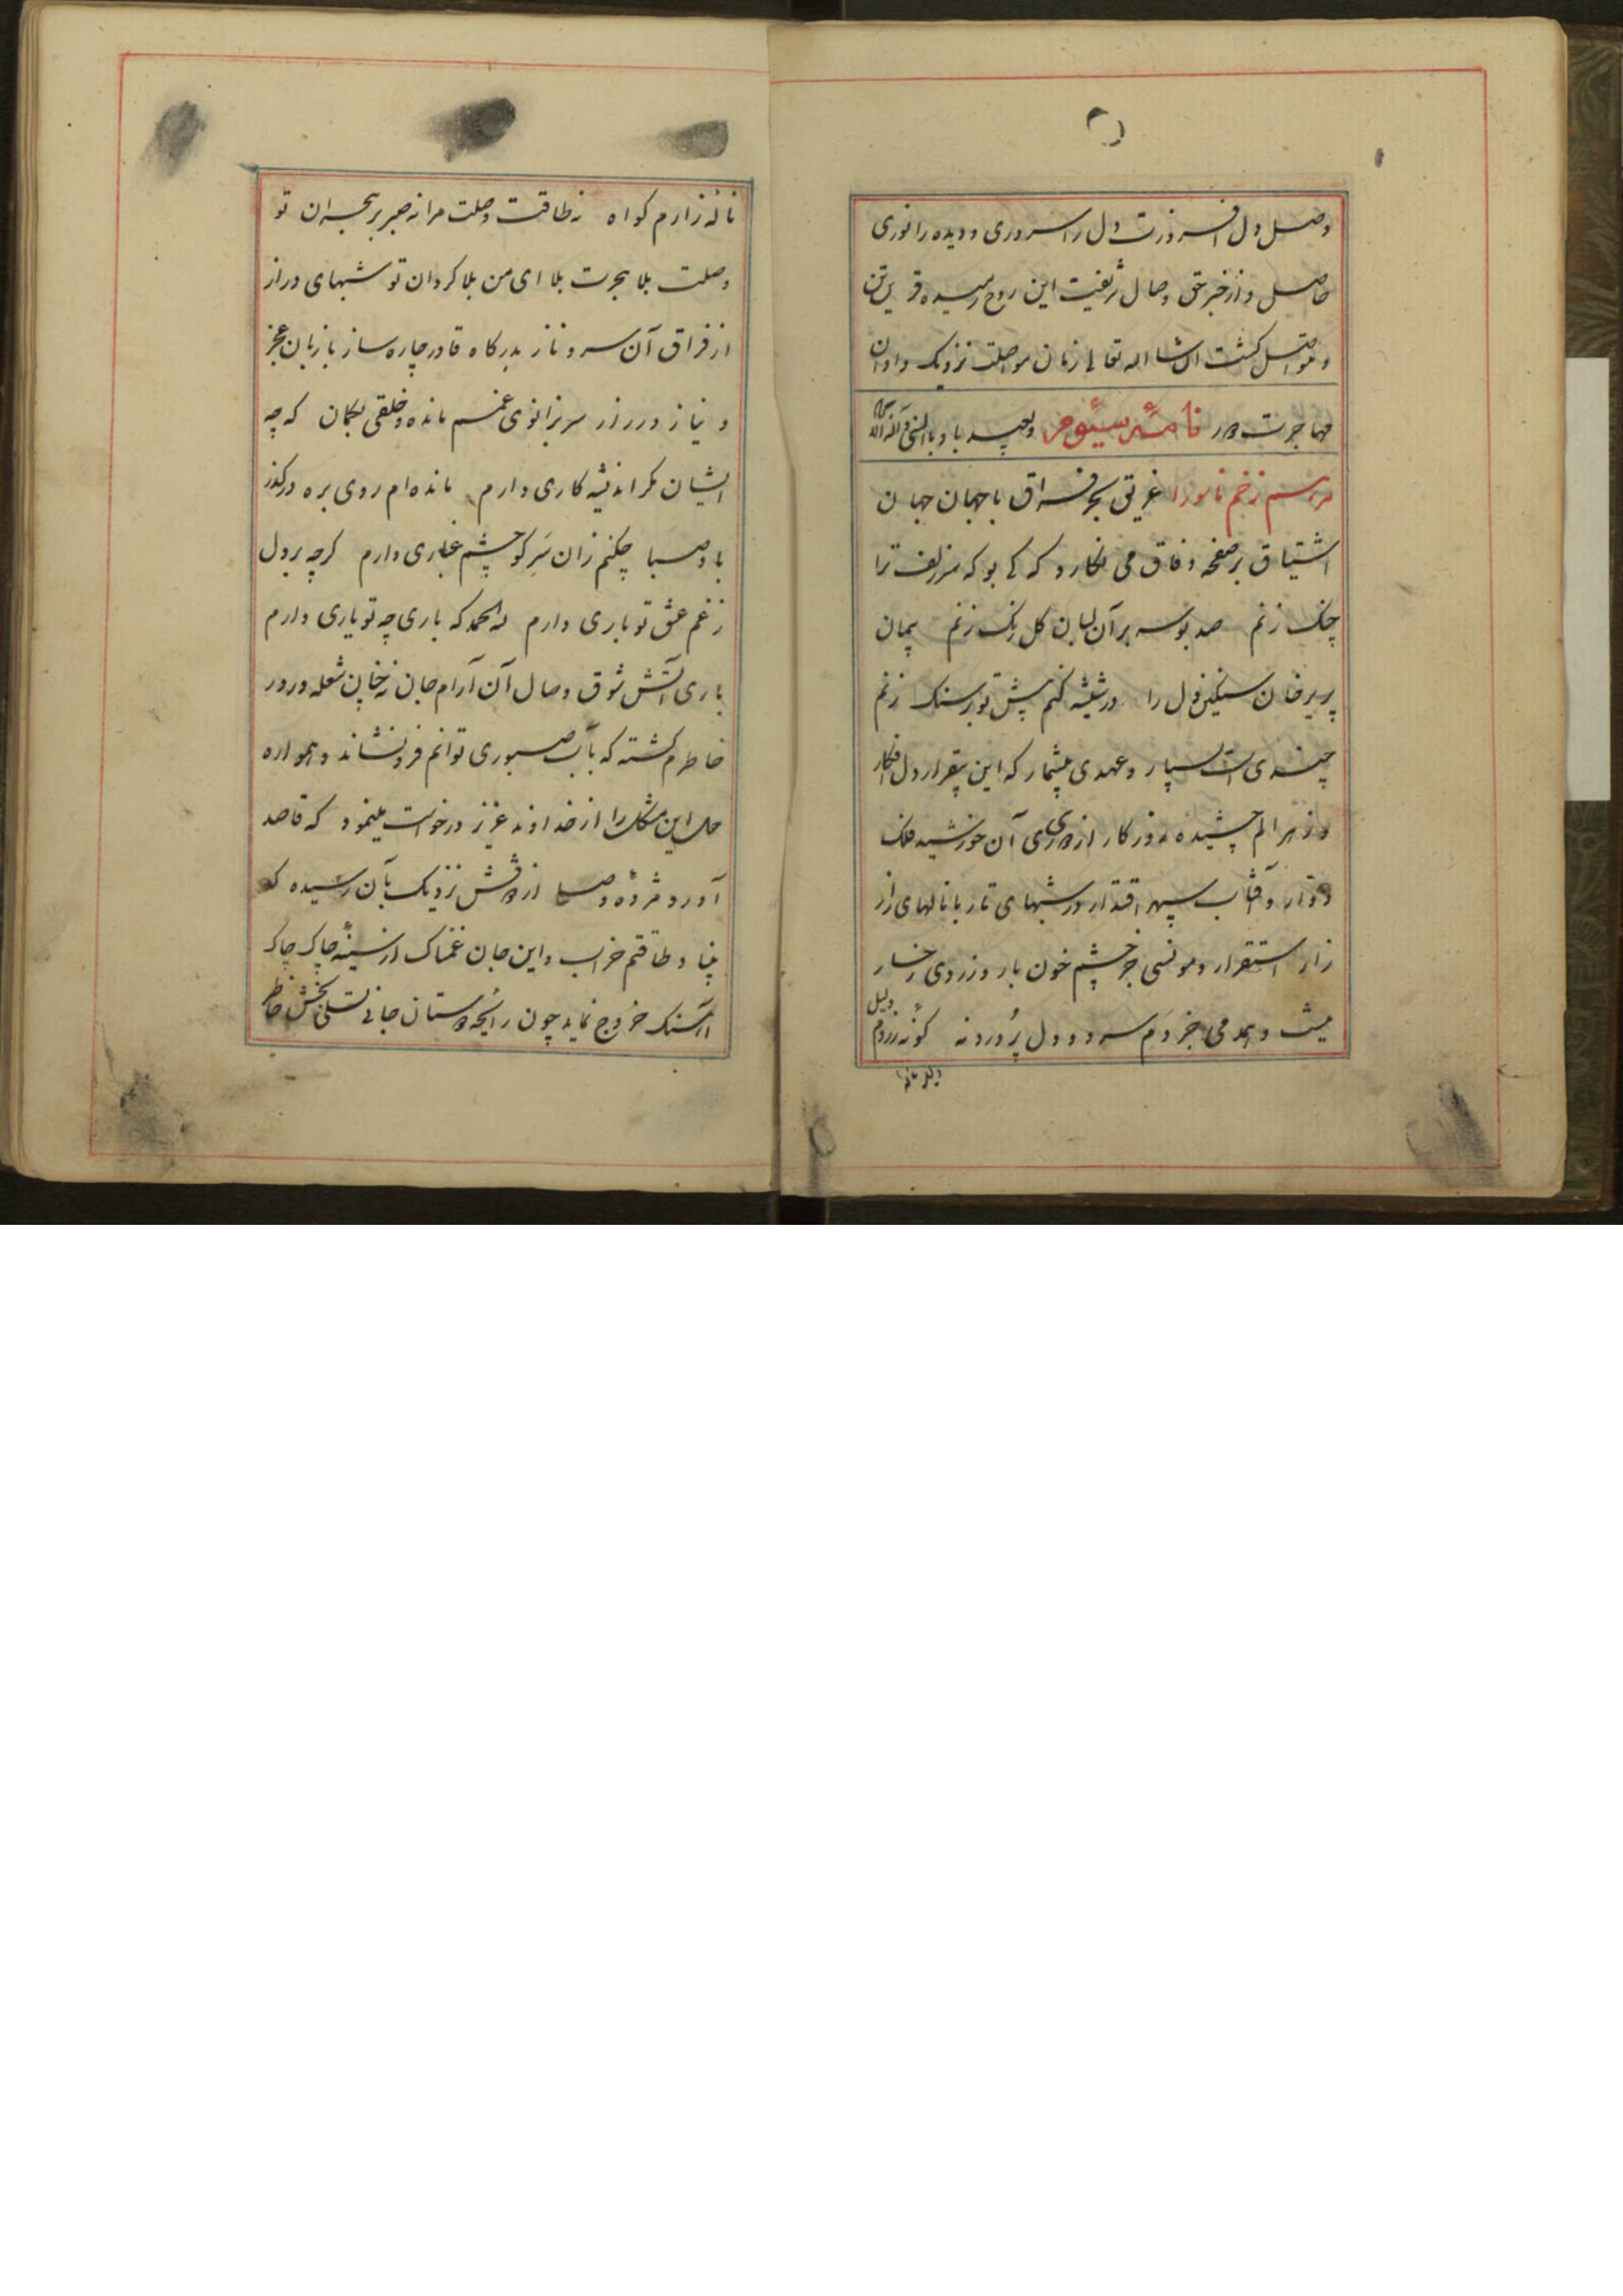 وصل دل افروزت دل را سروری و دیده را نوری
حاصل و از خبر حق وصال شریفت این روح رمیده قرین تن
و متواصل کشت ان شا الله تعالی زمان مواصلت نزدیک و اوان
مهاجرت دور نامهٔ سیوم وبعید باد بالنبی و آله
مرهم زخم ناسور را غریق بحر فراق با جهان جهان
اشتیاق بر صفحه وفاق می نکارد که کی بو که سر زلف ترا
چنک زنم صد بوسه بر آن لبان کل رنک زنم پیمان
پریرخان سنکین دل را در شیشه کنم پیش تو بر سنک زنم
چندی است بسیار و عهدی بیشمار که این بیقرار دل افکار
و زهر الم چشیده روزکار از دوری آن خورشید فلک
وقار و آفتاب سپهر اقتدار در شبهای تار با نالهای زار
زار استقرار و مونسی جز چشم خون بار و زردی رخسار
نیست و همدمی جز دم سرد و دل پر درد نه کونه زردم دلیل
ناله زارم کواه نه طاقت وصلت مرا نه صبر بر هجران تو
وصلت بلا هجرت بلا ای من بلا کردان تو شبهای دراز
از فراق آن سرو ناز بدرکاه قادر چاره ساز با زبان عجز
و نیاز و روز سر بزانوی غم مانده و خلقی بکمان که چه
ایشان مکر اندیشه کاری دارم مانده ام روی بره در کذر
باد صبا چکنم زان سر کو چشم غباری دارم کرچه بر دل
ز غم عشق تو باری دارم لله الحمد که باری چه تو یاری دارم
باری آتش شوق وصال آن آرام جان نه چنان شعله ور در
خاطرم کشته که بآب صبوری توانم فرو نشاند و همواره
حل این مشکل را از خداوند عزیز درخواست مینمود که قاصد
آورد مژدهٔ وصل از فرقتش نزدیک بآن رسیده که
بنیاد طاقتم خراب و این جان غمناک از سینهٔ چاک چاک
آهنک خروج نماید چون رایحه دوستان جانی تسلی بخش خاطر